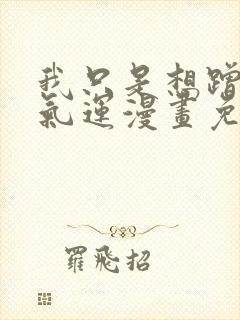 我只是想蹭
氣運漫畫免
羅飛招